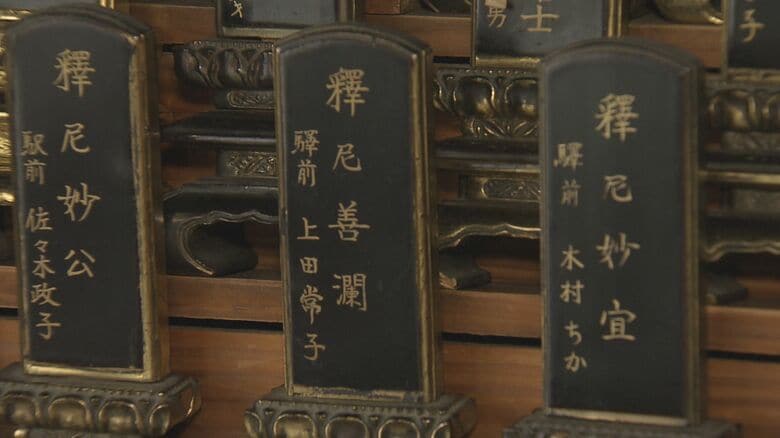 釋尼妙宜
驛前 木村ちか
釋尼善瀾
驛前 上田常子
釋尼妙公
駅前 佐々木政子
男
士
子